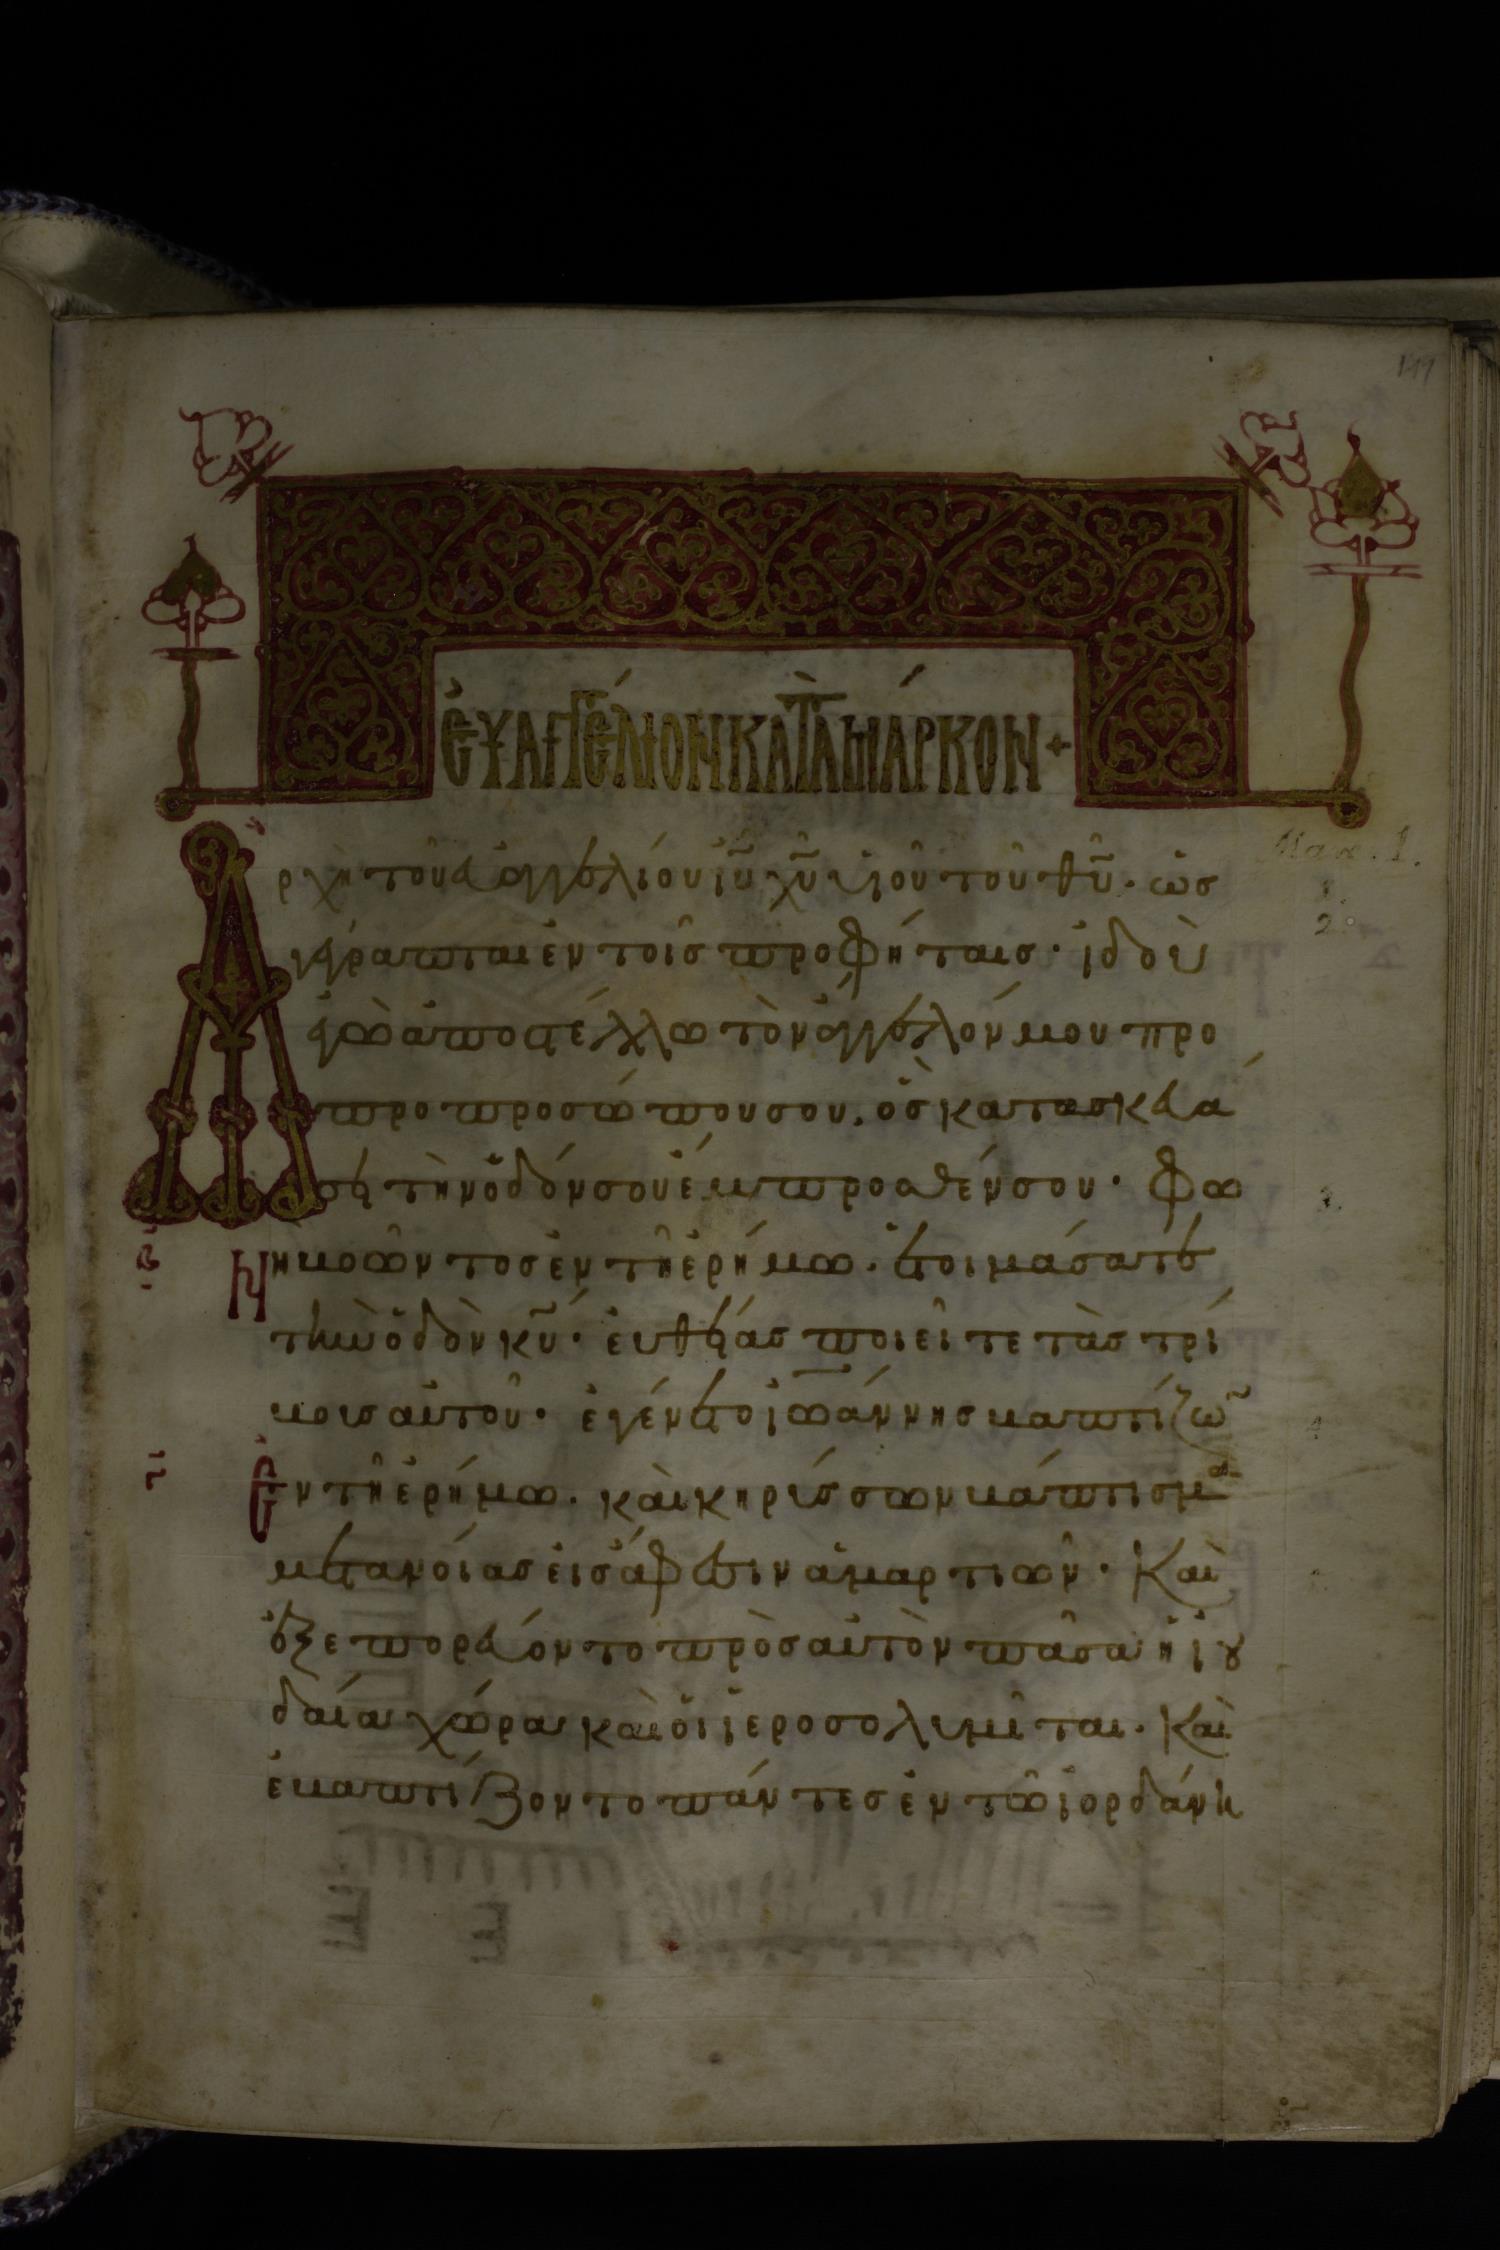 ἐυαγγέλιον κατὰ μάρκον +
Ἀρχὴ τοῦ ἐυαγγελίου ἰῦ χῦ ὑιοῦ τοῦ θῦ· ὡσ
γέγραπται ἐν τοῖσ προφήταισ· ἰδοὺ
ἐγὼ ἀποστέλλω τὸν ἄγγελόν μου προ
προ προσώπου σου, ὃσ κατασκευά
σει τὴν ὁδόν σου ἔμπροσθέν σου· φω
νὴ βοῶντοσ ἐν τῆ ἐρήμω· ἑτοιμάσατε
τὴν ὁδὸν κῦ· ἐυθείασ ποιεῖτε τὰσ τρί
βουσ αὐτοῦ· ἐγένετο ἰωάννησ βαπτίζω
Ἐν τῆ ἐρήμω· καὶ κηρύσσων βάπτισμα
μετανοίασ ἐισ ἄφεσιν ἁμαρτιῶν· Καὶ
ἐξεπορεύοντο πρὸσ αὐτὸν πᾶσα ἡ ἰου
δαία χώρα καὶ ὁι ἱεροσολυμῖται· Καὶ
ἐβαπτίζοντο πάντεσ ἐν τῶ ἰορδάνη
1.
2.
3.